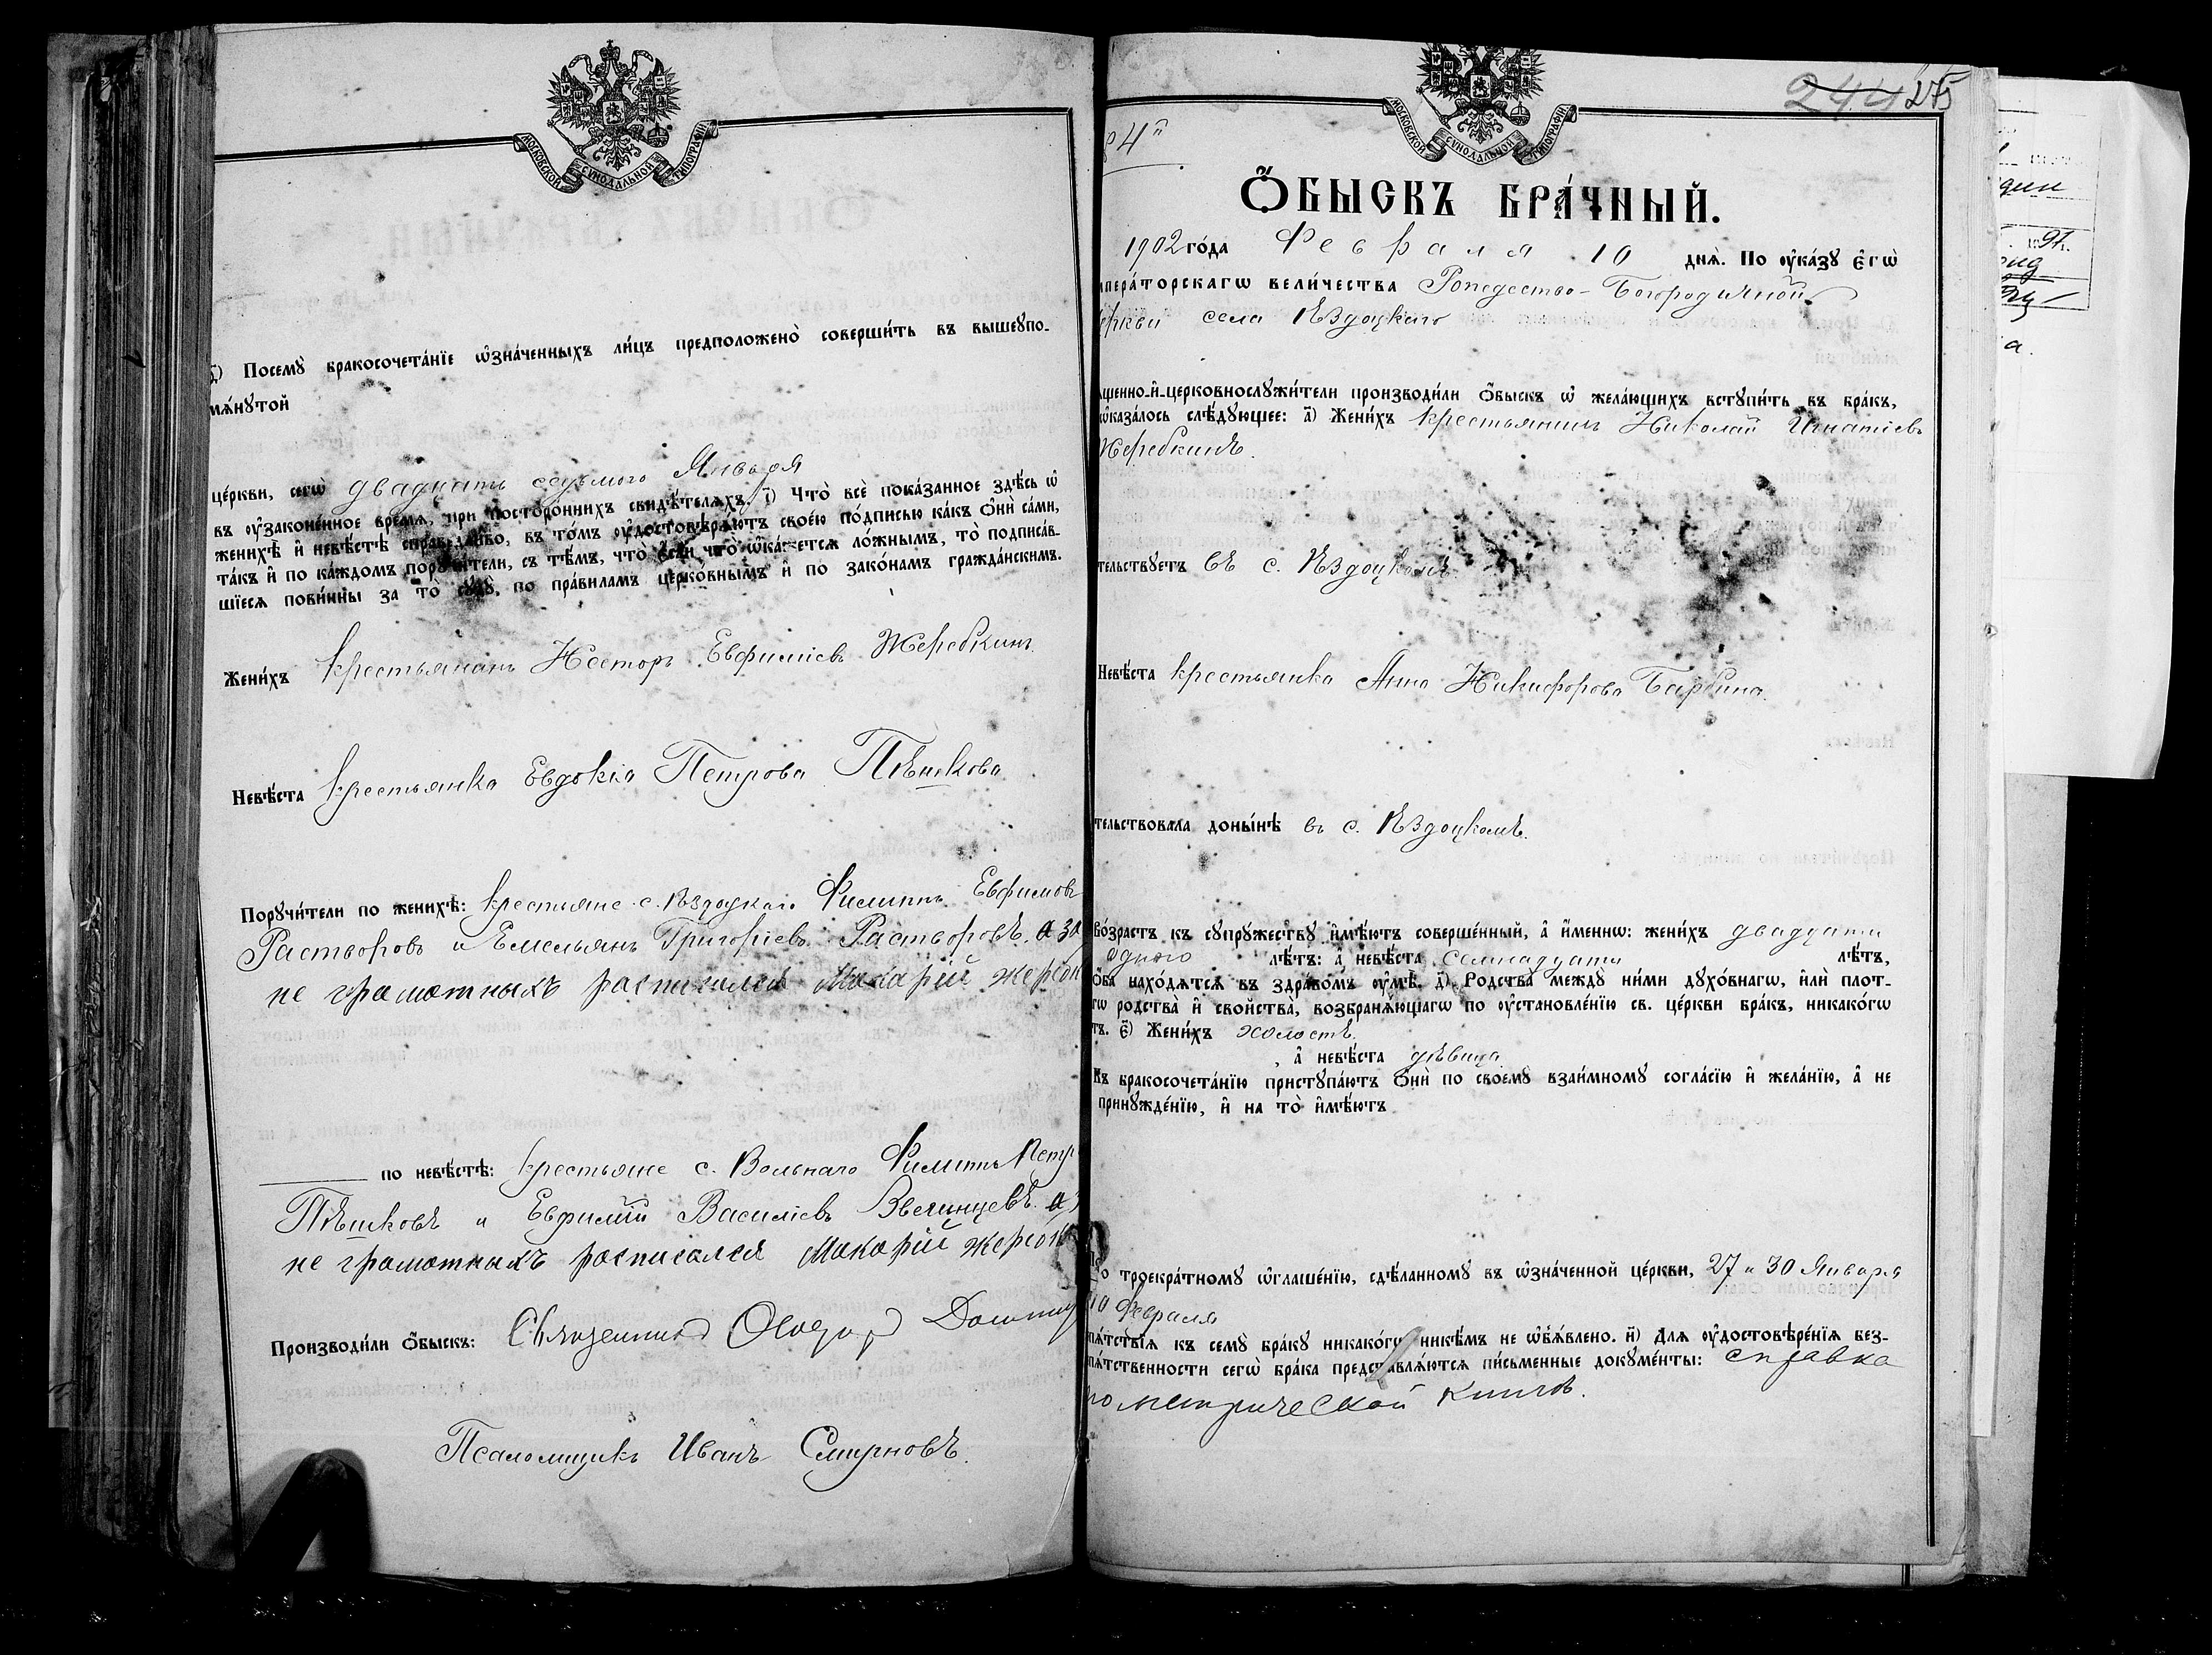 МОСКОВСКОЙ СѴНОДАЛЬНОЙ ТИПОГРАФІИ
) Посемꙋ̀ бракосочета́нїе ѡ҆зна́ченныхъ ли́цъ предположено̀ соверши́ть въ вышеꙋпо-
мѧ́нꙋтой
це́ркви, сегѡ̀ двадцать седьмого Января
въ ᲂу҆зако́ненное времѧ, при посторо́ннихъ свидѣ́телѧхъ. і҃) Что̀ всѐ пока́занное здѣ́сь ѡ҆
женихѣ̀ и҆ невѣ́стѣ справедли́во, въ то́мъ ᲂу҆достовѣрѧ́ютъ свое́ю по́дписью ка́къ ѻ҆нѝ са́ми,
та́къ и҆ по ка́ждомъ порꙋчи́тели, съ тѣ́мъ, что̀ є҆́сли что̀ ѡ҆ка́жетсѧ ло́жнымъ, то̀ подписа́в-
шїесѧ пови́нны за то̀ сꙋдꙋ̀, по пра́виламъ церко́внымъ и҆ по зако́намъ гражда́нскимъ.
Жени́хъ крестьянинъ Несторъ Евфиміевъ Жеребкинъ
Невѣ́ста крестьянка Евдокія Петрова Пѣшкова
Порꙋчи́тели по женихѣ̀: крестьяне с. Ѣздоцкаго Филиппъ Евфимовъ
Растворовъ и Емельянъ Григоріевъ Растворовъ. а за
не грамотныхъ расписался Макарій Жеребк
по невѣ́стѣ: крестьяне с. Вольнаго Филиппъ Петр
Пѣшковъ и Евфимій Василіевъ Звегинцевъ. а з
не грамотныхъ расписался Макарій Жеребк
Производи́ли ѻ҆́быскъ: Священникъ
Псаломщикъ Иванъ Смирновъ.
МОСКОВСКОЙ СѴНОДАЛЬНОЙ ТИПОГРАФІИ
244 275
84
Ѻ҆́БЫСКЪ БРА́ЧНЫЙ.
1902 го́да Февраля 10 днѧ̀. По ᲂу҆ка́зꙋ є҆гѡ̀
мпера́торскагѡ вели́чества Рождество-Богородичной
еркви села Ѣздоцкаго
щенно-и҆-церковнослꙋжи́тели производи́ли ѻ҆́быскъ ѡ҆ жела́ющихъ встꙋпи́ть въ бра́къ,
ѡ҆каза́лось слѣ́дꙋющее: а҃) Жени́хъ крестьянинъ Николай Игнатіевъ
Жеребкинъ.
тельствꙋетъ въ с. Ѣздоцкомъ
Невѣ́ста крестьянка Анна Никифорова Барбина.
тельствовала доны́нѣ въ с. Ѣздоцкомъ.
Во́зрастъ къ сꙋпрꙋ́жествꙋ и҆мѣ́ютъ соверше́нный, а҆ и҆́меннѡ: жени́хъ двадцати
одного лѣ́тъ: а҆ невѣ́ста семнадцати лѣ́тъ,
ѻ҆́ба нахо́дѧтсѧ въ здра́вомъ ᲂу҆мѣ̀. д҃) Родства̀ междꙋ̀ ни́ми дꙋхо́внагѡ, и҆лѝ плот-
гѡ родства̀ и҆ свойства̀, возбранѧ́ющагѡ по ᲂу҆становле́нїю св. це́ркви бра́къ, никако́гѡ
тъ. є҃) Жени́хъ холостъ
, а҆ невѣ́ста дѣвица
Къ бракосочета́нїю пристꙋпа́ютъ ѻ҆нѝ по своемꙋ̀ взаи́мномꙋ согла́сїю и҆ жела́нїю, а҆ не
принꙋжде́нїю, и҆ на то̀ и҆мѣ́ютъ
По троекра́тномꙋ ѡ҆глаше́нїю, сдѣ́ланномꙋ въ ѡ҆зна́ченной це́ркви, 27 и 30 Января
10 Февраля
пѧ́тствїѧ къ семꙋ̀ бра́кꙋ никако́гѡ никѣ́мъ не ѡ҆б̾ѧ́влено. и҃) Длѧ ᲂу҆достовѣре́нїѧ без-
пѧ́тственности сегѡ̀ бра́ка представлѧ́ютсѧ пи́сьменные докꙋме́нты: справка
по метрической книгѣ.